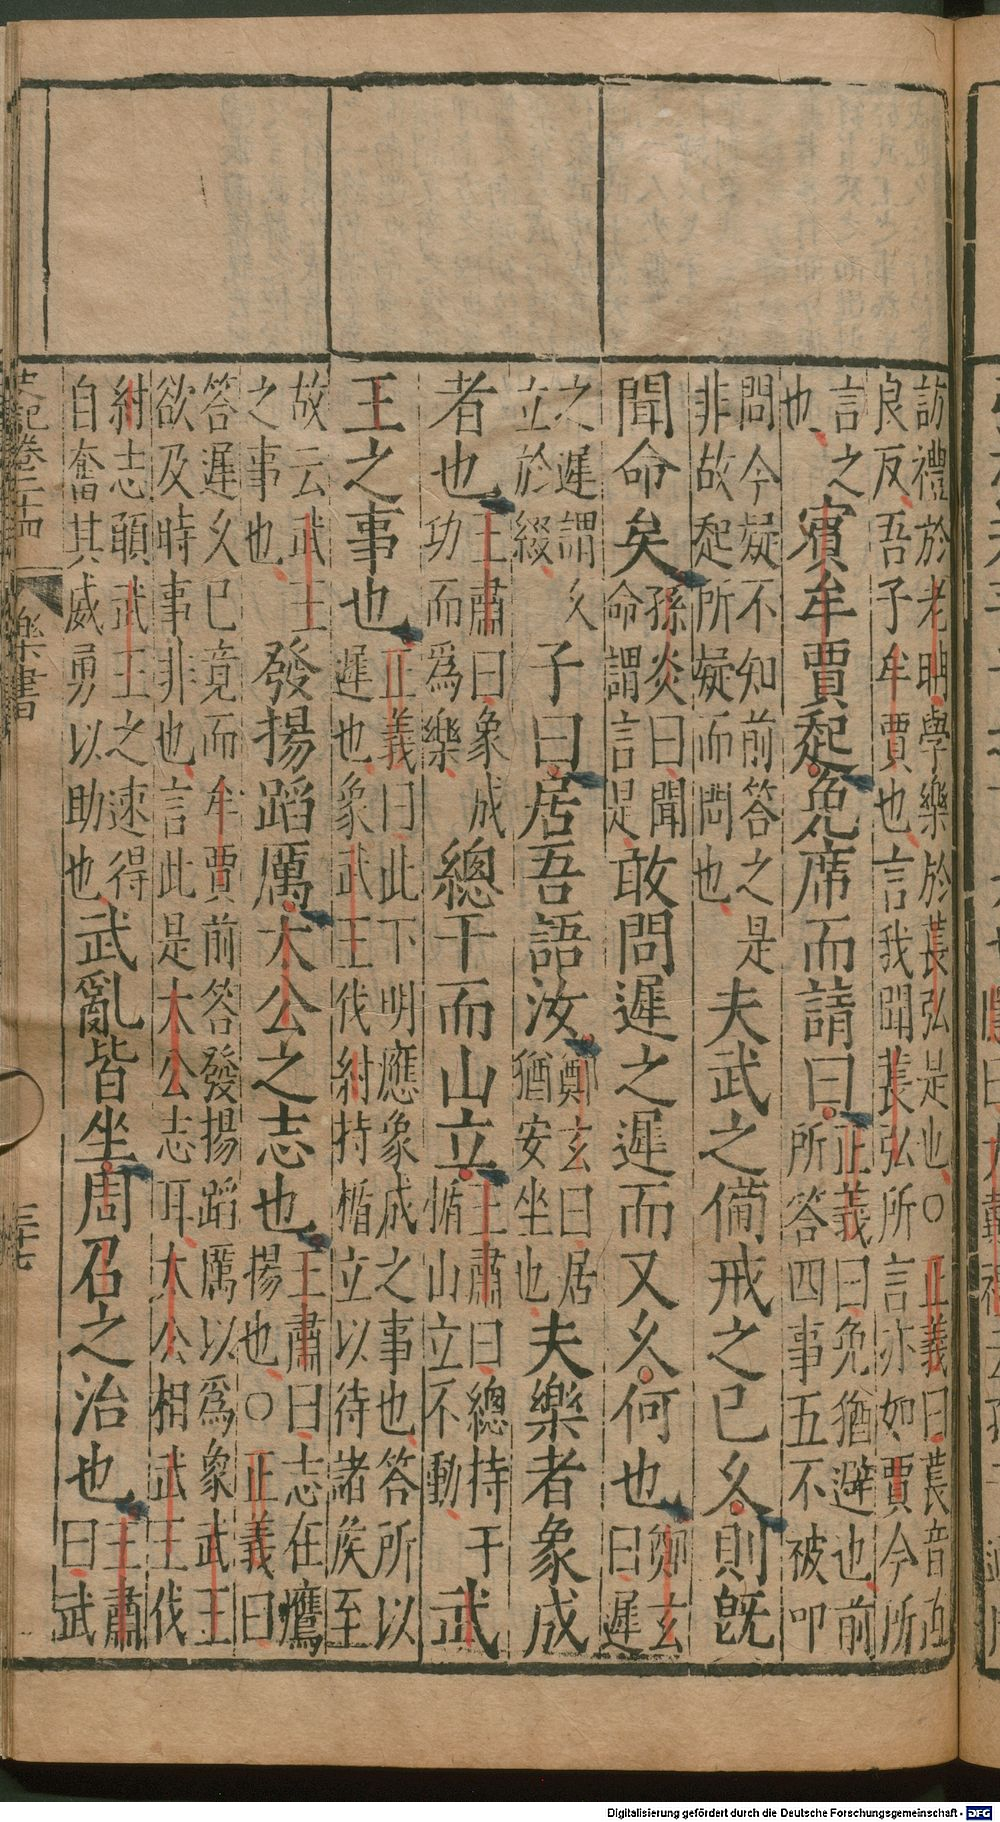 訪禮於老聃學樂於萇弘是也○正義曰萇音直
良反吾子牟賈也言我聞萇弘所言亦如賈今所
言之
也賓牟賈起免席而請曰正義曰免猶避也前
所答四事五不被叩
問今疑不知前答之是
非故起所疑而問也夫武之備戒之已久則既
聞命矣孫炎曰聞
命謂言是敢問遲之遲而又久何也鄭玄
曰遲
之遲謂久
立於綴子曰居吾語汝鄭玄曰居
猶安坐也夫樂者象成
者也王肅曰象成
功而爲樂總干而山立王肅曰總持干
楯山立不動武
王之事也正義曰此下明應象成之事也答所以
遲也象武王伐紂持楯立以待諸侯至
故云武王
之事也發揚蹈厲太公之志也王肅曰志在鷹
揚也○正義曰
答遲久已竟而牟賈前答發揚蹈厲以爲象武王
欲及時事非也言此是太公志耳太公相武王伐
紂志願武王之速得
自奮其威勇以助也武亂皆坐周召之治也王肅
曰武
史記卷二十四 樂書 三十七
Digitalisierung gefördert durch die Deutsche Forschungsgemeinschaft - DFG